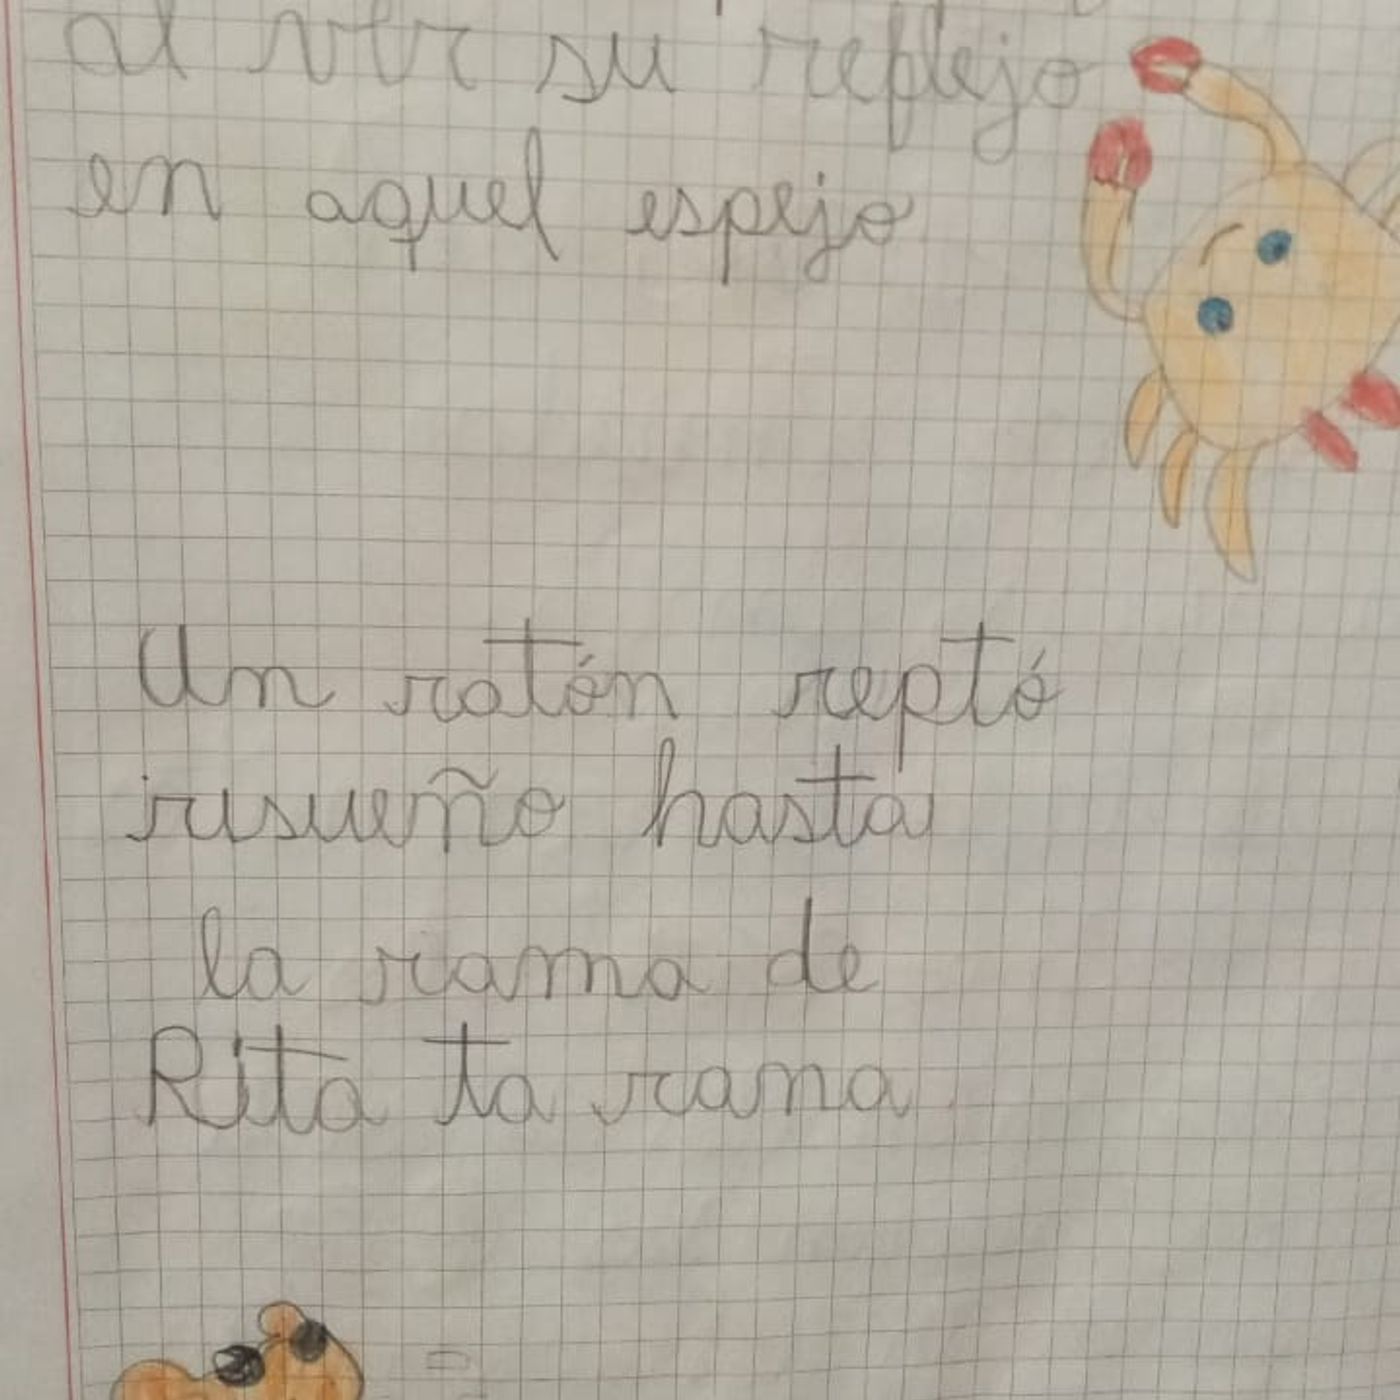 al ver su reflejo
en aquel espejo
Un ratón reptó
risueño hasta
la rama de
Rita ta rana